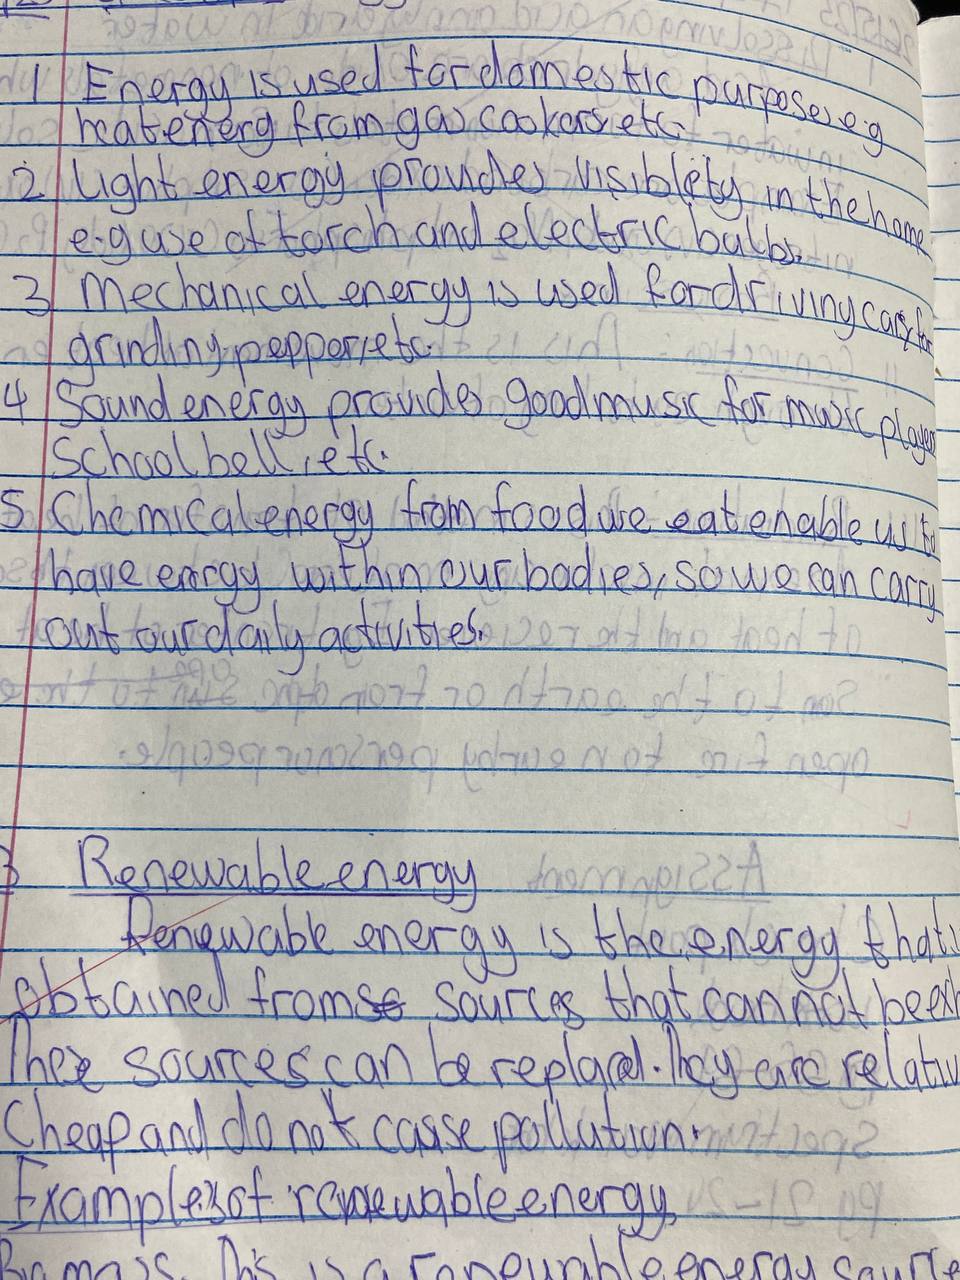 1 Energy is used for domestic purpose e.g
heat energ from gas cookers etc.
2 Light energy provides visiblety in the home
e.g use of torch and electric bulbs.
3 Mechanical energy is used for driving cars, for
grinding pepper, etc.
4 Sound energy provides good music for music player
School bell, etc.
5 Chemical energy from food we eat enable us to
have energy within our bodies, so we can carry
out our daily activities.
Renewable energy
Renewable energy is the energy that
obtained from sources that can not be
These sources can be replaced. They are
Cheap and do not cause pollution.
Examples of renewable energy
Biomass. This is a renewable energy source